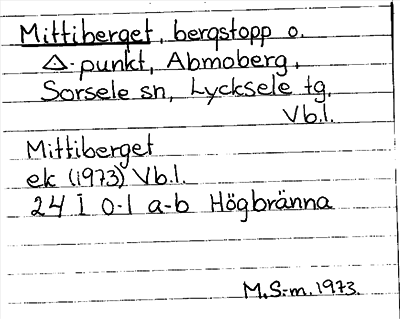 Mittiberget, bergstopp o.
△-punkt, Abmoberg,
Sorsele sn, Lycksele tg.
Vb.l.
Mittiberget
ek (1973) Vb.l.
24 I 0-1 a-b Högbränna
M.S:-m. 1973.